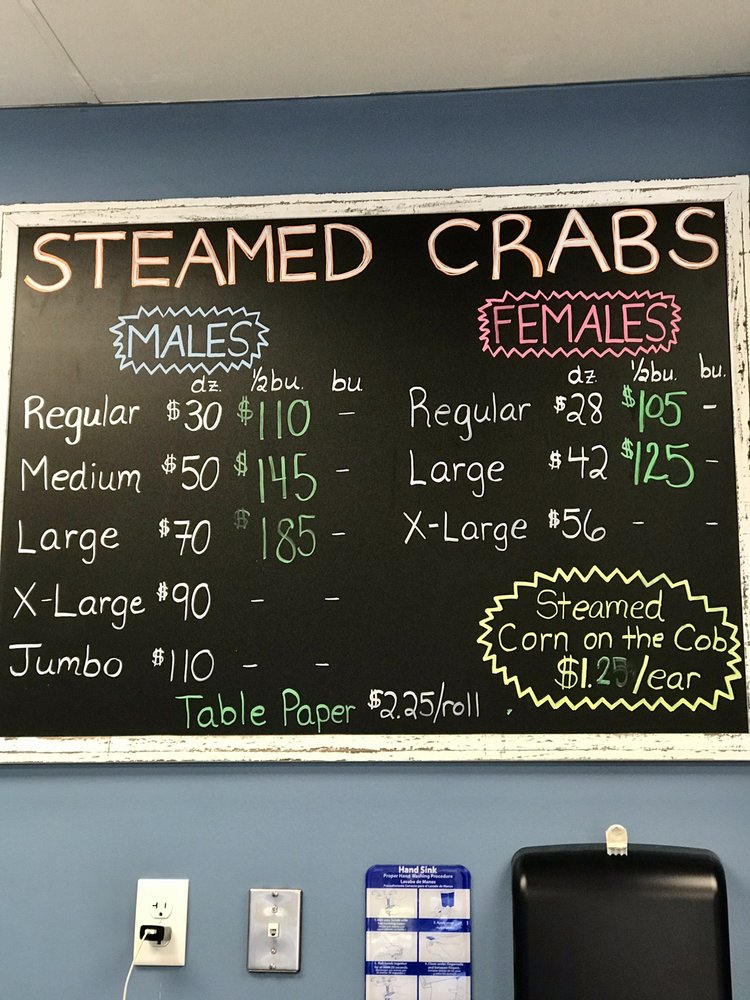 STEAMED CRABS
MALES
dz. ½bu. bu
Regular $30 $110 -
Medium $50 $145 -
Large $70 $185 -
X-Large $90 - -
Jumbo $110 - -
FEMALES
dz. ½bu. bu.
Regular $28 $105 -
Large $42 $125 -
X-Large $56 - -
Steamed
Corn on the Cob
$1.25/ear
Table Paper $2.25/roll
Hand Sink
Proper Hand Washing Procedure
Lavabo de Manos